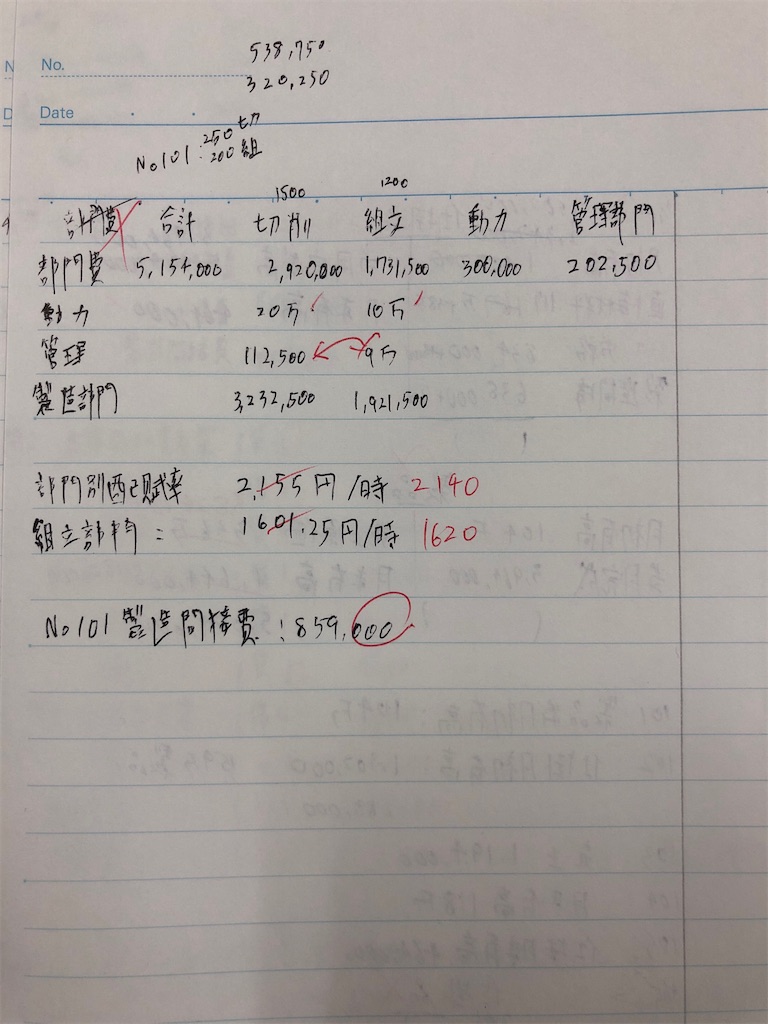 538,750
No.
320,250
Date
250 切
No101 : 200 組
1500 1200
合計 切削 組立 動力 管理部門
部門費 5,154,000 2,920,000 1,731,500 300,000 202,500
動力 20万 10万
管理 112,500 9万
製造部門 3,232,500 1,921,500
部門別配賦率 2,155円/時 2140
組立部門: 1601.25円/時 1620
No101 製造間接費:859,000